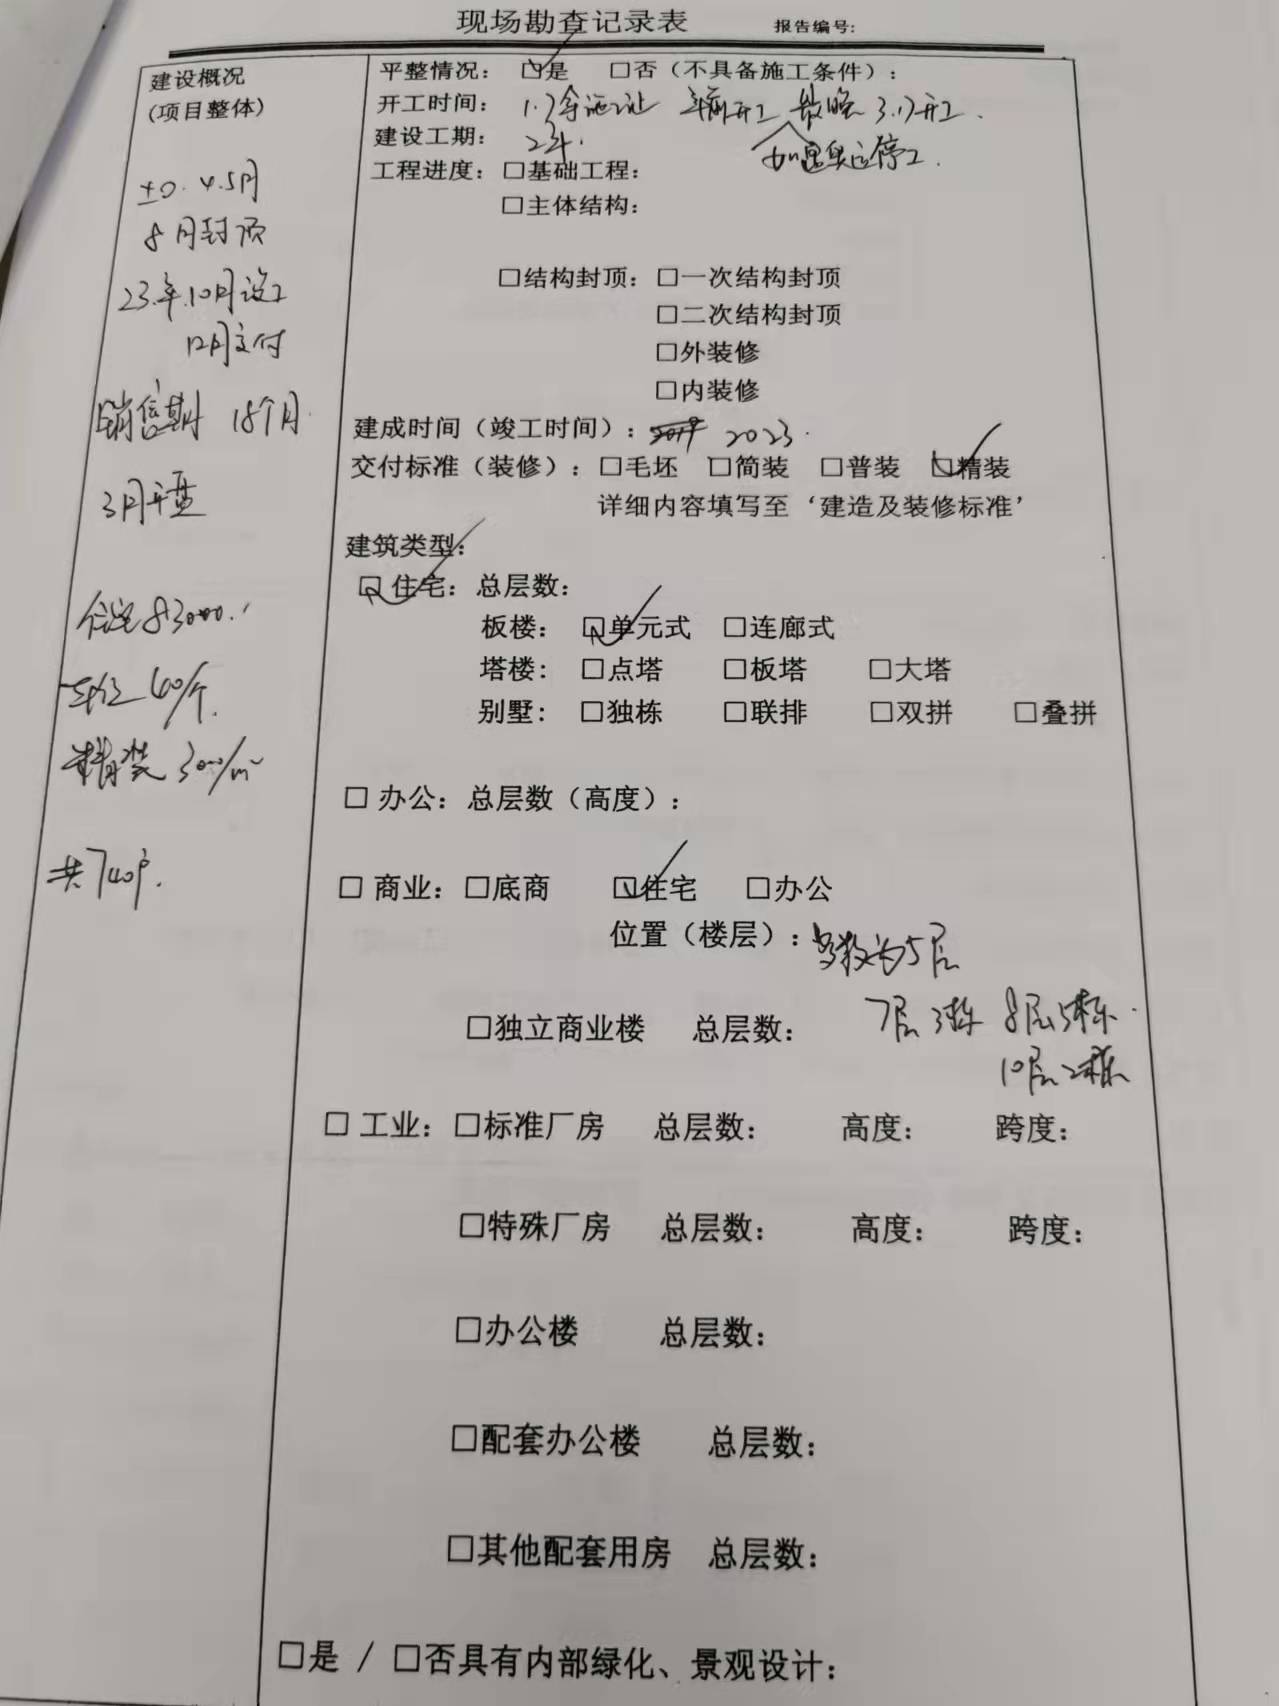 现场勘查记录表 报告编号:
建设概况
(项目整体)
±0. 4.5月
8月封顶
23.年.10月竣工
12月交付
销售期 18个月.
3月开盘
住宅83000.
车位 40/个.
精装 3000/㎡
共740户.
平整情况: ☑是 □否(不具备施工条件):
开工时间: 1.7拿施工证 年前开工 最晚 3.17开工.
如遇奥运停工.
建设工期: 2年.
工程进度: □基础工程:
□主体结构:
□结构封顶: □一次结构封顶
□二次结构封顶
□外装修
□内装修
建成时间(竣工时间): 2023.
交付标准(装修): □毛坯 □简装 □普装 ☑精装
详细内容填写至‘建造及装修标准’
建筑类型:
☑住宅: 总层数:
板楼: ☑单元式 □连廊式
塔楼: □点塔 □板塔 □大塔
别墅: □独栋 □联排 □双拼 □叠拼
□办公: 总层数(高度):
□商业: □底商 ☑住宅 □办公
位置(楼层): 多数为5层
7层3栋 8层5栋.
10层2栋
□独立商业楼 总层数:
□工业: □标准厂房 总层数: 高度: 跨度:
□特殊厂房 总层数: 高度: 跨度:
□办公楼 总层数:
□配套办公楼 总层数:
□其他配套用房 总层数:
□是 / □否具有内部绿化、景观设计: